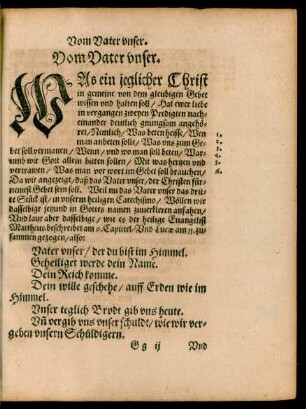 Vom Vater vnser.
Vom Vater vnser.
WAs ein jeglicher Christ
in gemeine von dem gleubigen Gebet
wissen vnd halten soll / Hat ewer liebe
in vergangen zweyen Predigten nach-
einander deutlich gnungsam angehö-
ret / Nemlich / Was beten heisse / Wen
man anbeten solle / Was vns zum Ge-
bet soll vermanen / Wenn / vnd wo man soll beten / War-
umb wir Gott allein bieten sollen / Mit was hertzen vnd
vertrawen / Was man vor wort im Gebet soll brauchen /
Da wir angezeigt / daß das Vater vnser / der Christen für-
nemest Gebet sein soll. Weil nu das Vater vnser das drit-
te Stück ist / in vnserm heiligen Catechismo / Wöllen wir
dasselbige jetzund in Gottes namen zuuerkleren anfahen /
Vnd laut aber dasselbige / wie es der heilige Euangelist
Mattheus beschreibet am 6. Capitel / Vnd Lucæ am 11. zu-
sammen gezogen / also:
Vater vnser / der du bist im Himmel.
Geheiliget werde dein Name.
Dein Reich komme.
Dein wille geschehe / auff Erden wie im
Himmel.
Vnser teglich Brodt gib vns heute.
Vñ vergib vns vnser schuldt / wie wir ver-
geben vnsern Schüldigern.
Gg ij Vnd